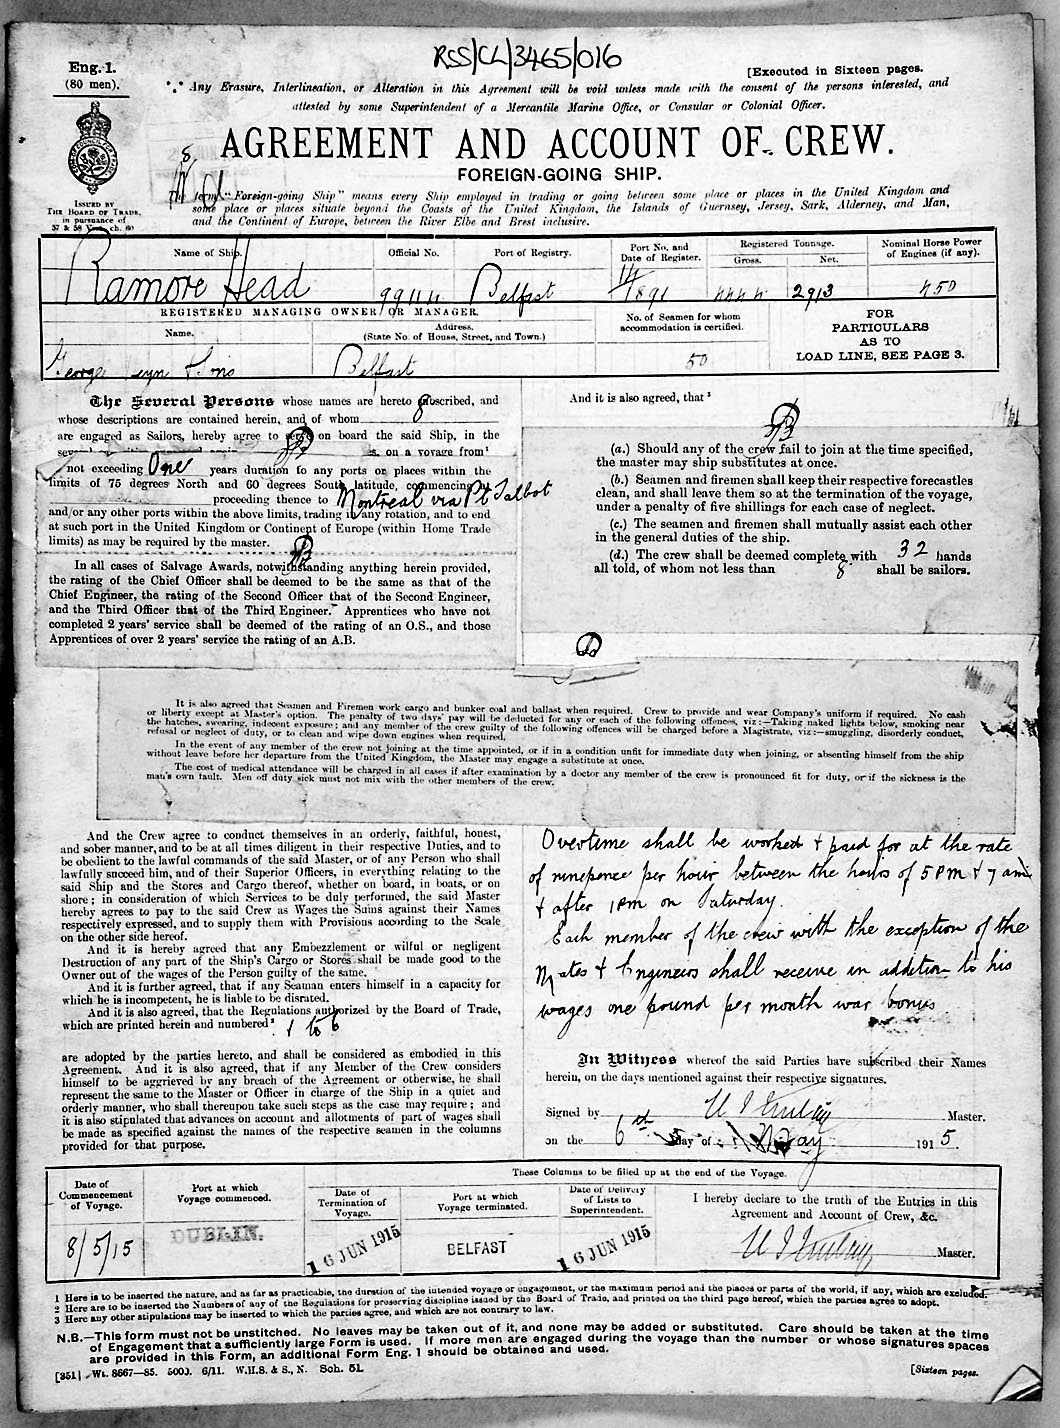 RSS/CL/3465/016
Eng. 1.
(80 men).
[Executed in Sixteen pages.
Any Erasure, Interlineation, or Alteration in this Agreement will be void unless made with the consent of the persons interested, and
attested by some Superintendent of a Mercantile Marine Office, or Consular or Colonial Officer.
AGREEMENT AND ACCOUNT OF CREW.
FOREIGN-GOING SHIP.
ISSUED BY
THE BOARD OF TRADE,
in pursuance of
57 & 58 Vict. ch. 60
The term "Foreign-going Ship" means every Ship employed in trading or going between some place or places in the United Kingdom and
some place or places situate beyond the Coasts of the United Kingdom, the Islands of Guernsey, Jersey, Sark, Alderney, and Man,
and the Continent of Europe, between the River Elbe and Brest inclusive.
Name of Ship.
Official No.
Port of Registry.
Port No. and
Date of Register.
Registered Tonnage.
Gross.
Net.
Nominal Horse Power
of Engines (if any).
Ramore Head
Belfast
1891
2913
450
REGISTERED MANAGING OWNER OR MANAGER.
Name.
Address.
(State No. of House, Street, and Town.)
No. of Seamen for whom
accommodation is certified.
FOR
PARTICULARS
AS TO
LOAD LINE, SEE PAGE 3.
George Sons
Belfast
50
The Several Persons whose names are hereto subscribed, and
whose descriptions are contained herein, and of whom 8
are engaged as Sailors, hereby agree to serve on board the said Ship, in the
on a voyage from
not exceeding One years duration to any ports or places within the
limits of 75 degrees North and 60 degrees South latitude, commencing
proceeding thence to Montreal via Pt Talbot
and/or any other ports within the above limits, trading in any rotation, and to end
at such port in the United Kingdom or Continent of Europe (within Home Trade
limits) as may be required by the master.
In all cases of Salvage Awards, notwithstanding anything herein provided,
the rating of the Chief Officer shall be deemed to be the same as that of the
Chief Engineer, the rating of the Second Officer that of the Second Engineer,
and the Third Officer that of the Third Engineer. Apprentices who have not
completed 2 years' service shall be deemed of the rating of an O.S., and those
Apprentices of over 2 years' service the rating of an A.B.
And it is also agreed, that 3
(a.) Should any of the crew fail to join at the time specified,
the master may ship substitutes at once.
(b.) Seamen and firemen shall keep their respective forecastles
clean, and shall leave them so at the termination of the voyage,
under a penalty of five shillings for each case of neglect.
(c.) The seamen and firemen shall mutually assist each other
in the general duties of the ship.
(d.) The crew shall be deemed complete with 32 hands
all told, of whom not less than 8 shall be sailors.
It is also agreed that Seamen and Firemen work cargo and bunker coal and ballast when required. Crew to provide and wear Company's uniform if required. No cash
or liberty except at Master's option. The penalty of two days' pay will be deducted for any or each of the following offences, viz:—Taking naked lights below, smoking near
the hatches, swearing, indecent exposure; and any member of the crew guilty of the following offences will be charged before a Magistrate, viz:—smuggling, disorderly conduct,
refusal or neglect of duty, or to clean and wipe down engines when required.
In the event of any member of the crew not joining at the time appointed, or if in a condition unfit for immediate duty when joining, or absenting himself from the ship
without leave before her departure from the United Kingdom, the Master may engage a substitute at once.
The cost of medical attendance will be charged in all cases if after examination by a doctor any member of the crew is pronounced fit for duty, or if the sickness is the
man's own fault. Men off duty sick must not mix with the other members of the crew.
And the Crew agree to conduct themselves in an orderly, faithful, honest,
and sober manner, and to be at all times diligent in their respective Duties, and to
be obedient to the lawful commands of the said Master, or of any Person who shall
lawfully succeed him, and of their Superior Officers, in everything relating to the
said Ship and the Stores and Cargo thereof, whether on board, in boats, or on
shore; in consideration of which Services to be duly performed, the said Master
hereby agrees to pay to the said Crew as Wages the Sums against their Names
respectively expressed, and to supply them with Provisions according to the Scale
on the other side hereof.
And it is hereby agreed that any Embezzlement or wilful or negligent
Destruction of any part of the Ship's Cargo or Stores shall be made good to the
Owner out of the wages of the Person guilty of the same.
And it is further agreed, that if any Seaman enters himself in a capacity for
which he is incompetent, he is liable to be disrated.
And it is also agreed, that the Regulations authorized by the Board of Trade,
which are printed herein and numbered 2 1 to 6
are adopted by the parties hereto, and shall be considered as embodied in this
Agreement. And it is also agreed, that if any Member of the Crew considers
himself to be aggrieved by any breach of the Agreement or otherwise, he shall
represent the same to the Master or Officer in charge of the Ship in a quiet and
orderly manner, who shall thereupon take such steps as the case may require; and
it is also stipulated that advances on account and allotments of part of wages shall
be made as specified against the names of the respective seamen in the columns
provided for that purpose.
Overtime shall be worked & paid for at the rate
of ninepence per hour between the hours of 5 PM & 7 am
& after 1PM on Saturday.
Each member of the crew with the exception of the
Mates & Engineers shall receive in addition to his
wages one pound per month war bonus
In Witness whereof the said Parties have subscribed their Names
herein, on the days mentioned against their respective signatures.
Signed by Master.
on the 6th day of May 1915.
These Columns to be filled up at the end of the Voyage.
Date of
Commencement
of Voyage.
Port at which
Voyage commenced.
Date of
Termination of
Voyage.
Port at which
Voyage terminated.
Date of Delivery
of Lists to
Superintendent.
I hereby declare to the truth of the Entries in this
Agreement and Account of Crew, &c.
8/5/15
DUBLIN.
16 JUN 1915
BELFAST
16 JUN 1915
Master.
1 Here is to be inserted the nature, and as far as practicable, the duration of the intended voyage or engagement, or the maximum period and the places or parts of the world, if any, which are excluded.
2 Here are to be inserted the Numbers of any of the Regulations for preserving discipline issued by the Board of Trade, and printed on the third page hereof, which the parties agree to adopt.
3 Here any other stipulations may be inserted to which the parties agree, and which are not contrary to law.
N.B.—This form must not be unstitched. No leaves may be taken out of it, and none may be added or substituted. Care should be taken at the time
of Engagement that a sufficiently large Form is used. If more men are engaged during the voyage than the number or whose signatures spaces
are provided in this Form, an additional Form Eng. 1 should be obtained and used.
[351] Wt. 8667—85. 5000. 6/11. W.H.S. & S., N. Sch. 51.
[Sixteen pages.